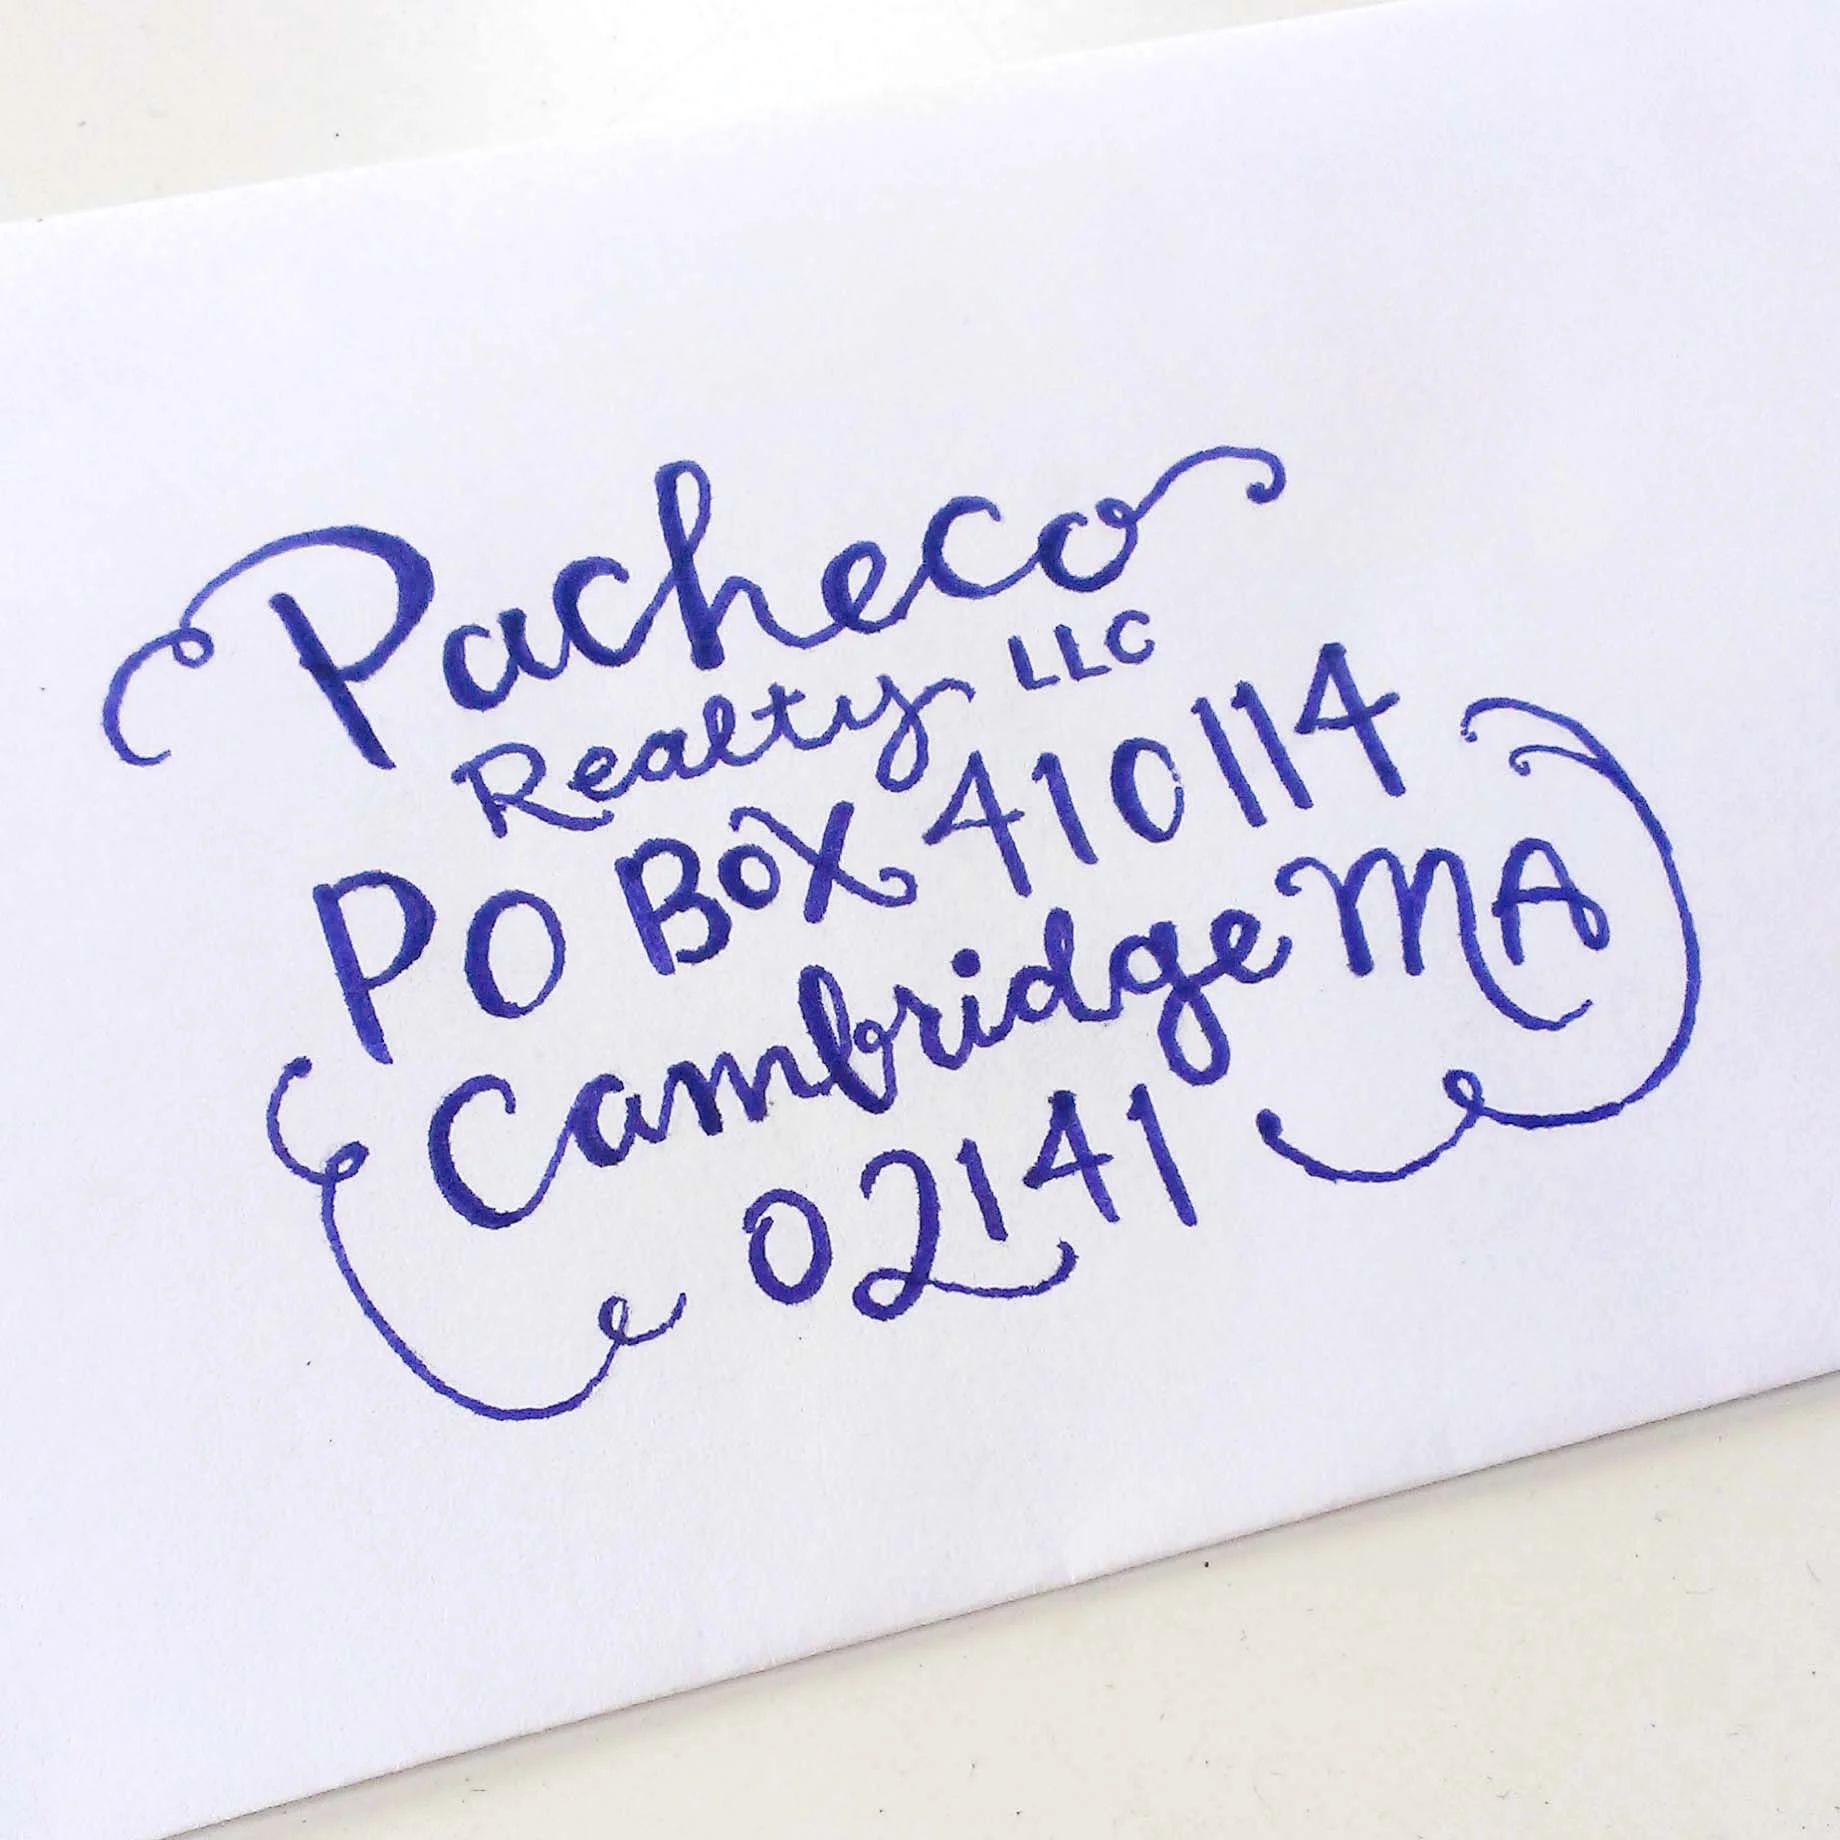 Pacheco
Realty LLC
PO BOX 410114
Cambridge MA
02141